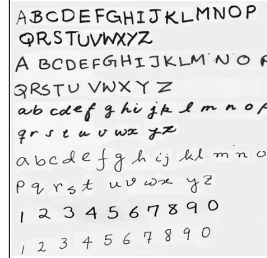 ABCDEFGHIJKLMNOP
QRSTUVWXYZ
A BCDEFGHIJKLMNOP
QRSTU VWXYZ
ab cdef g hi jk l m n o p
qr s t u v wx yz
abcdefghij kl mno
pqrst uvwx yz
1 2 3 4 5 6 7 8 9 0
1 2 3 4 5 6 7 8 9 0